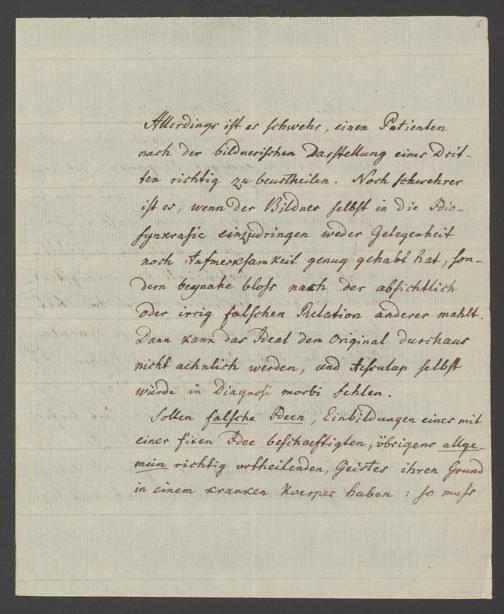 6
Allerdings ist es schwehr, einen Patienten
nach der bildnerischen Darstellung eines Drit-
ten richtig zu beurtheilen. Noch schwehrer
ist es, wenn der Bildner selbst in die Idio-
synkrasie einzudringen weder Gelegenheit
noch Aufmerksamkeit genug gehabt hat, son-
dern beynahe bloss nach der absichtlich
oder irrig falschen Relation anderer mahlt.
Dann kann das Ideal dem Original durchaus
nicht aehnlich werden, und Aesculap selbst
würde in Diagnosi morbi fehlen.
Sollen falsche Ideen, Einbildungen eines mit
einer fixen Idee beschaeftigten, übrigens allge-
mein richtig urtheilenden, Geistes ihren Grund
in einem kranken Koerper haben: so muss